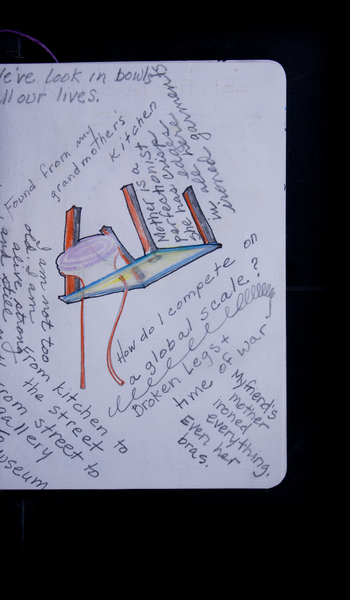 e've look in bowls
ll our lives.
Found from my
grandmother's
Kitchen
Mother is a
perfectionist
she
ironed
How do I compete on
a global scale?
Broken Legs +
time of war
My friend's
mother
ironed
everything.
Even her
bras.
I am not too
old, I am
alive, strong
and still
from kitchen to
the street
from street to
gallery
museum